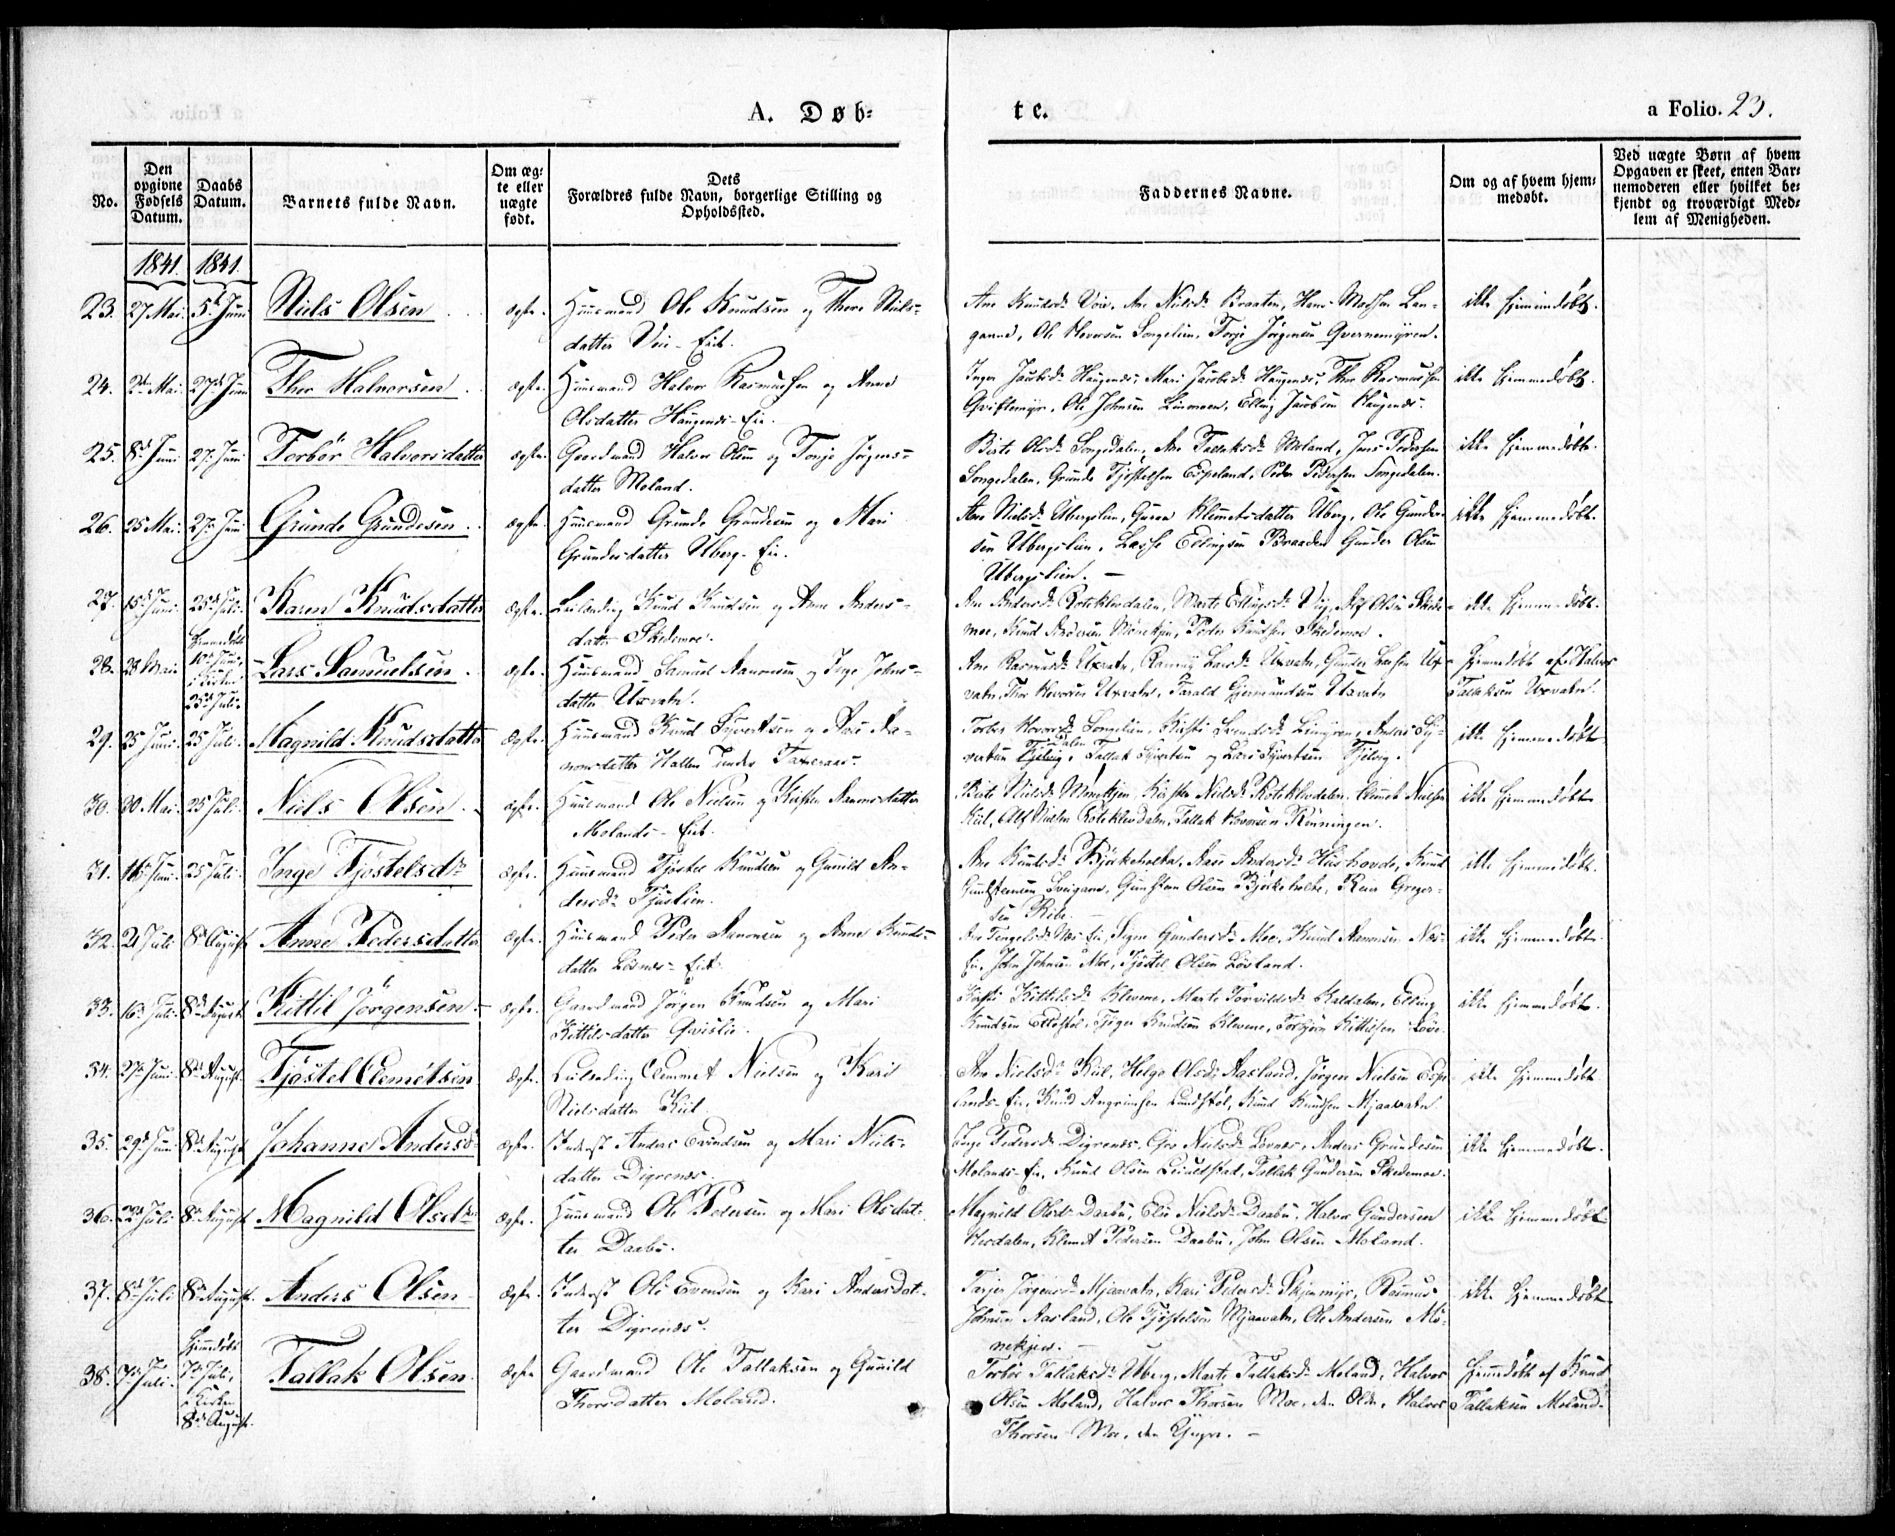 A. Døb=
te.
a Folio. 23.
No.
Den opgivne Fødsels Datum.
Daabs Datum.
Barnets fulde Navn.
Om æg=te eller uægte født.
Dets Forældres fulde Navn, borgerlige Stilling og Opholdssted.
Faddernes Navne.
Om og af hvem hjem=medøbt.
Ved uægte Børn af hvem Opgaven er skeet, enten Bar=nemoderen eller hvilket be=kjendt og troværdigt Med=lem af Menigheden.
1841. 1841.
23. 27 Mai. 5te Juni Niels Olsen ægte. Huusmand Ole Knudsen og Thore Niels=
datter Voie-Eie.
Ane Knudsd. Voie, Ane Nielsd. Braaten, Hans Madsen Lan=
ganne, Ole Hovorsen Songelien, Torje Jørgensen Qvernemyren.
ikke hjemmedøbt.
24. 2den Mai. 27de Juni Thor Halvorsen ægte. Huusmand Halvor Rasmussen og Anne
Olsdatter Haugenes-Eie.
Inger Jacobsd. Haugenes, Mari Jacobsd. Haugenes, Thor Rasmussen
Qviftemyr, Ole Johnsen Linmoen, Elling Jacobsen Haugenes.
ikke hjemmedøbt.
25. 8de Juni 27. Juni Torbør Halvorsdatter ægte. Gaardmand Halvor Olsen og Tonje Jørgens=
datter Moland.
Berte Olsd. Songedalen, Ane Tallaksd. Moland, Jens Pedersen
Songedalen, Grunde Tjøstelsen Espeland, Peder Pedersen Songedalen.
ikke hjemmedøbt.
26. 25 Mai. 27de Juni Grunde Grundesen ægte. Huusmand Grunde Grundesen og Mari
Grundesdatter Uberg-Eie.
Ane Nielsd. Ubergslien, Guroe Klemetsdatter Uberg, Ole Gunder=
sen Ubergslien, Lasse Ellingsen Braaden Gunder Olsen
Ubergslien.
ikke hjemmedøbt.
27. 15de Juni. 25de Juli. Karen Knudsdatter ægte. Leilænding Knud Knudsen og Anne Anders=
datter Skedemoe.
Ane Andersd. Rotekleivdalen, Marte Ellingsd. Vig, Alf Olsen Skede=
moe, Knud Andersen Mønekjen, Peder Knudsen Skedemoe.
ikke hjemmedøbt.
28. 28 Mai Hjemmedøbt
10de Juni,
i Kirken
25de Juli. Lars Samuelsen ægte. Huusmand Samuel Aanonsen og Inge Johns=
datter Uxvatn.
Ane Rasmusd. Uxvatn, Ranvig Larsd. Uxvatn, Gunder Larsen Ux=
vatn, Thor Hovorsen Uxvatn, Tarald Gjermundsen Uxvatn
Hjemmedøbt af Halvor
Tallaksen Uxvatn.
29. 25 Juni. 25 Juli. Magnild Knudsdatter ægte. Huusmand Knud Syvertsen og Aase Aa=
nonsdatter Hallen under Taxeraas.
Torber Hovorsd. Songelien, Kirsti Svendsd. Linmyren, Anders Sy=
vertsen Fjelvig, Tallak Syvertsen og Lars Syvertsen Fjelvig.
ikke hjemmedøbt
30. 30 Mai. 25 Juli. Niels Olsen ægte. Huusmand Ole Nielsen og Kirsten Aanonsdatter
Molands-Eie.
Berte Nielsd. Mønekjen, Kirsten Nielsd. Rotekleivdalen, Clemet Nielsen
Kiil, Alf Nielsen Rotekleivdalen, Tallak Hovorsen Rønningen.
ikke hjemmedøbt
31. 16de Juni. 25 Juli. Inge Tjøstelsdr. ægte. Huusmand Tjøstel Knudsen og Gunild An=
dersd. Fjuslien.
Ane Knudsd. Bjørkeholte, Aase Andersd. Huushovde, Knud
Gundstensen Sveigane, Gunsten Olsen Bjørkeholte, Kiens Greger=
sen Ribe.
ikke hjemmedøbt.
32. 21 Juli 8de August Anne Pedersdatter ægte. Huusmand Peder Aanonsen og Anne Knuds=
datter Løvnes-Eie.
Ane Tengelsd. Næs Eie, Signe Gundersd. Moe, Knud Aanonsen Næs-
Eie, John Johnsen Moe, Tjøstel Olsen Løvland.
ikke hjemmedøbt.
33. 16de Juli. 8de August Kittil Jörgensen ægte. Gaardmand Jörgen Knudsen og Mari
Kittilsdatter Qvislie.
Kirsti Kittelsd. Klevene, Marte Torvildsd. Kaldalen, Elling
Knudsen Ettestøl, Tjøger Knudsen Klevene, Torbjørn Kittilsen Løve.
ikke hjemmedøbt.
34. 27de Juni. 8de August. Tjøstel Clemetsen ægte. Leilænding Clemmet Nielsen og Kari
Nielsdatter Kiil.
Ane Nielsd. Kiil, Helge Olsd. Aasland, Jørgen Nielsen Espe=
lands-Eie, Knud Angrimsen Lundstøl, Knud Knudsen Mjaavatn
ikke hjemmedøbt
35. 29de Juni 8de August Johanne Andersd. ægte. Inderst Anders Evensen og Mari Niels=
datter Digrenes.
Inge Pedersd. Digrenes, Gro Nielsd. Løvnes, Anders Grundesen
Molands-Eie, Knud Olsen Leiulstad, Tallak Gundersen Skedemoe.
ikke hjemmedøbt.
36. 22de Juli 8de August Magnild Olsdr. ægte. Huusmand Ole Pedersen og Mari Olsdat=
ter Daabu.
Magnild Olsd. Daabu, Elie Nielsd. Daabu, Halvor Gundersen
Hesdalen, Klemet Pedersen Daabu, John Olsen Moland.
ikke hjemmedøbt
37. 8de Juli 8de August. Anders Olsen ægte. Inderst Ole Evensen og Kari Andersdat=
ter Digrenes.
Torjer Jørgensd. Mjaavatn, Kari Pedersd. Skjenmyr, Rasmus
Johnsen Aasland, Ole Tjøstelsen Mjaavatn, Ole Andersen Mø=
nekjen.
ikke hjemmedøbt
38. 7de Juli. Hjemmedøbt
7de Juli,
i Kirken
8de August. Tallak Olsen ægte Gaardmand Ole Tallaksen og Gunild
Thorsdatter Moland.
Torbør Tallaksd. Uberg, Marte Tallaksd. Moland, Halvor
Olsen Moland, Halvor Thorsen Moe, den Eldre, Halvor
Thorsen Moe, den Yngre.
Hjemmedøbt af Knud
Tallaksen Moland.